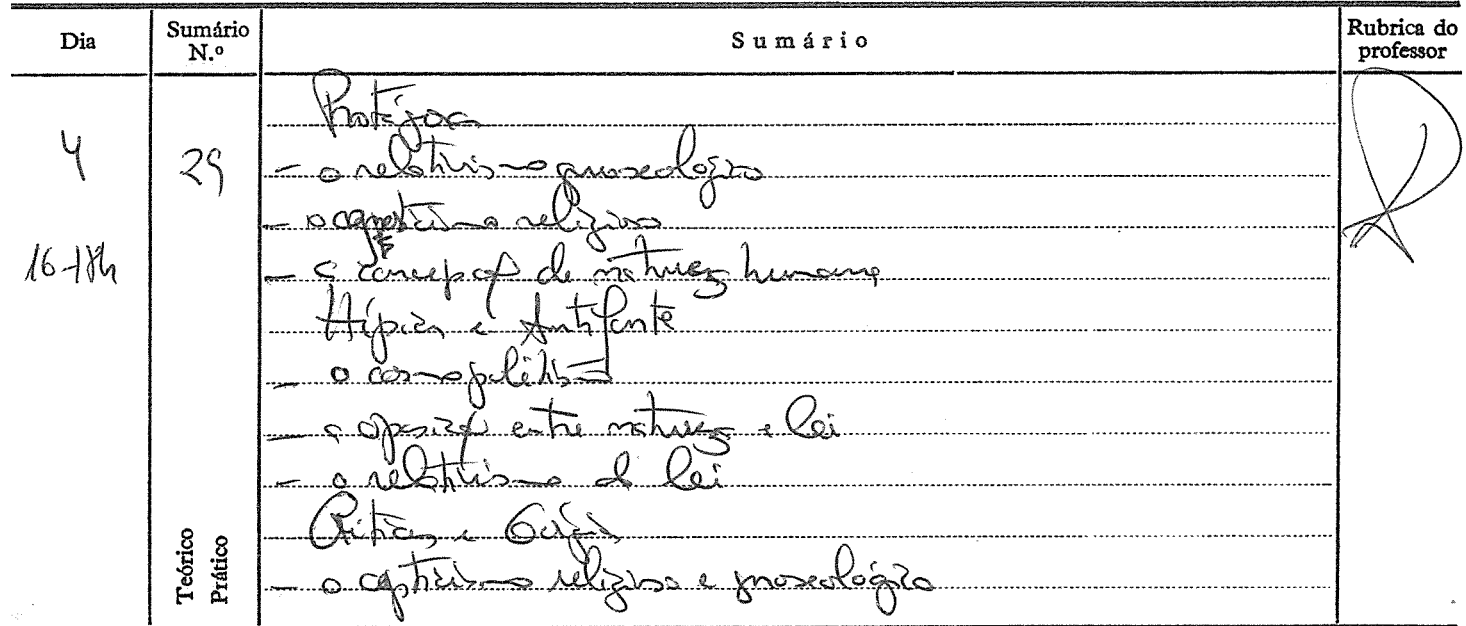 Dia
Sumário N.º
Sumário
Rubrica do professor
4
29
16-18h
Protágoras
- o relativismo gnoseológico
- o agnosticismo religioso
- a concepção de natureza humana
Hípias e Antifonte
- o cosmopolitismo
- a oposição entre natureza e lei
- o relativismo da lei
Crítias e Górgias
- o cepticismo religioso e gnoseológico
Teórico
Prático